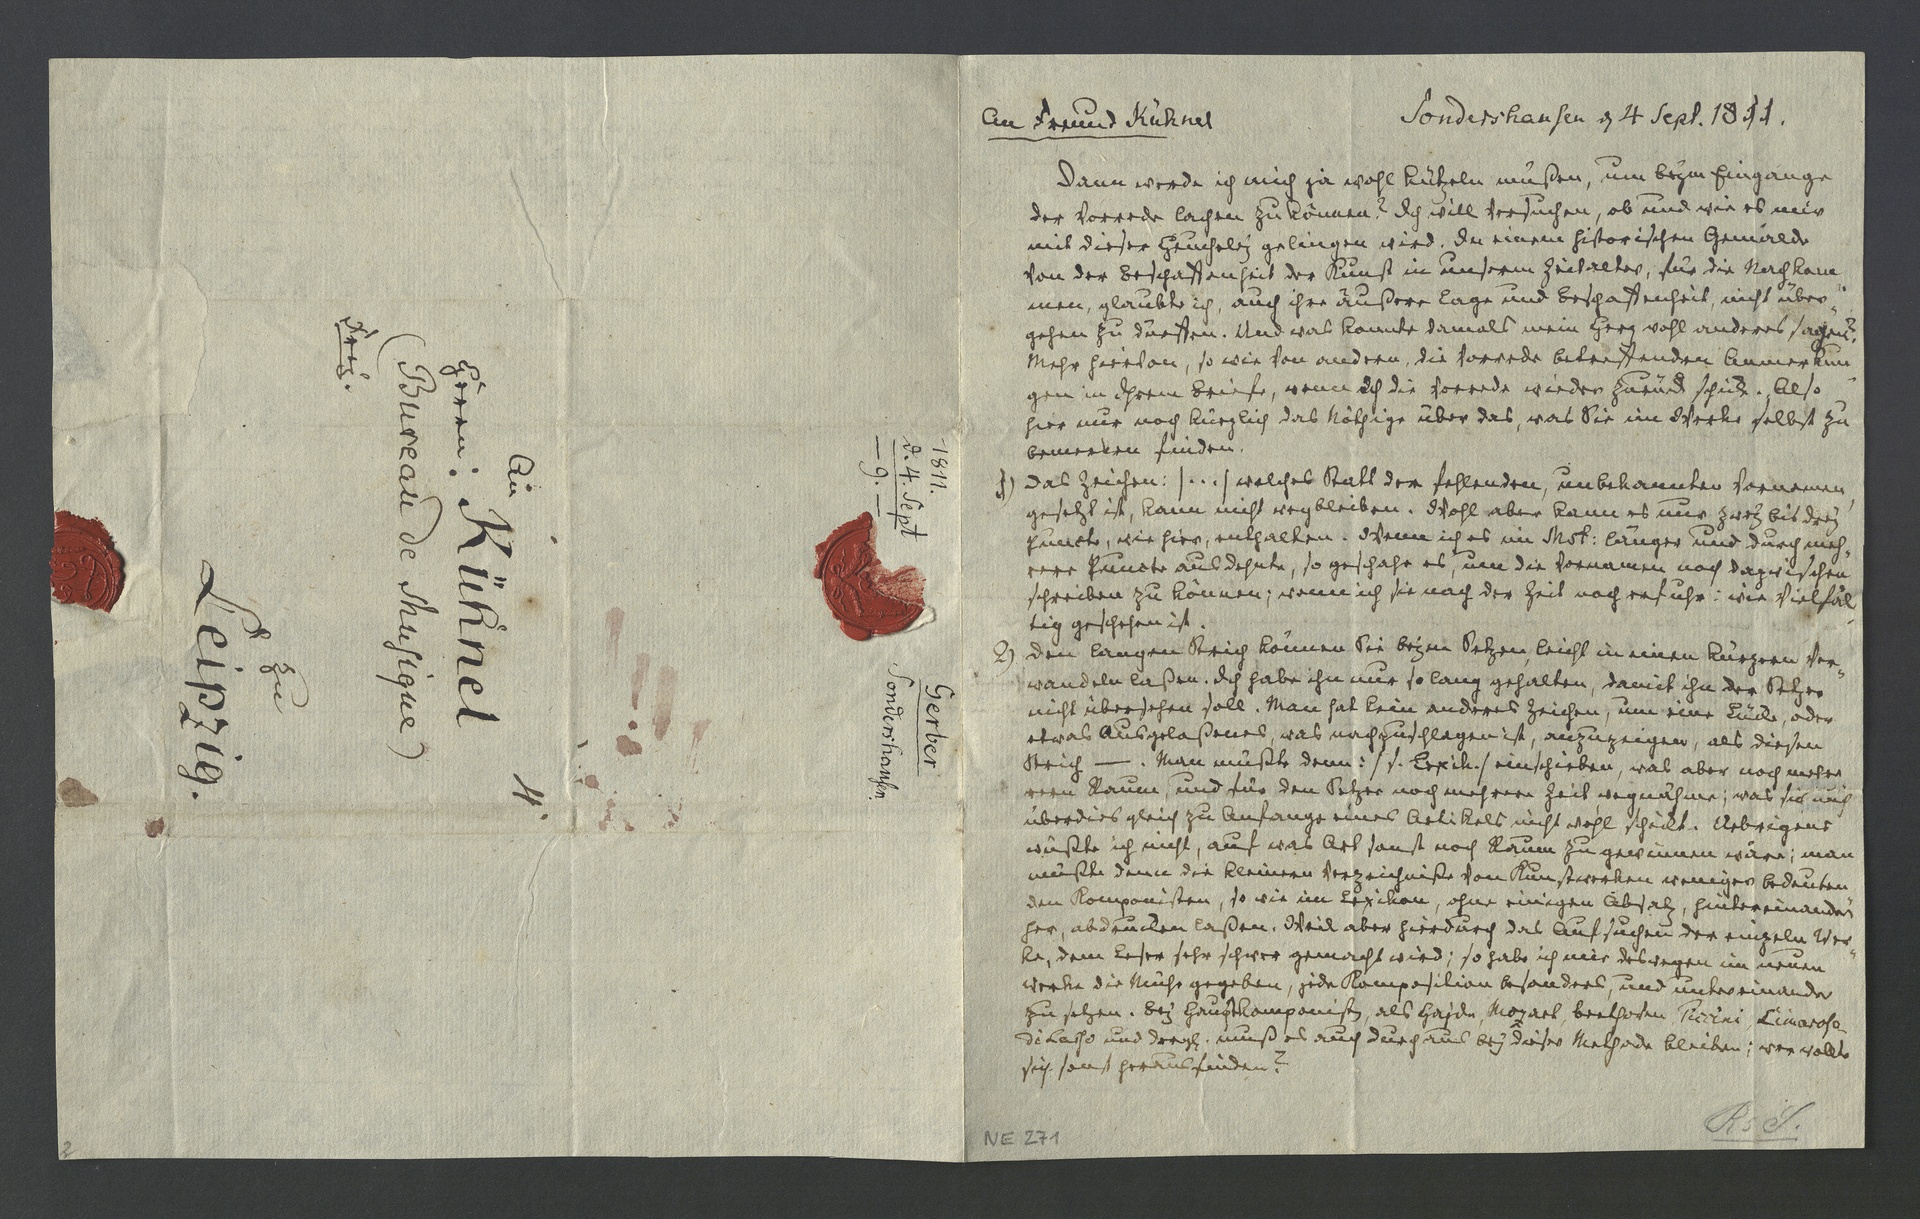 An
Herrn: Kühnel
(Bureau de Musique)
frei.
zu
Leipzig.
4.
1811.
d. 4. Sept
— 9. —
Gerber
Sondershausen.
An Freund Kühnel
Sondershausen d 4 Sept. 1811.
Dann werde ich mich ja wohl kützeln müßen, um beym Eingange
der Vorrede lachen zu können? Ich will versuchen, ob und wie es mir
mit dieser Heucheley gelingen wird. In einem historischen Gemälde
von der Beschaffenheit der Kunst in unserm Zeitalter, für die Nachkom
men, glaubte ich, auch ihre äußere Lage und Beschaffenheit, nicht über-
gehen zu dürffen. Und was konnte damals mein Herz wohl anderes sagen?
Mehr hiervon, so wie von andern, die Vorrede betreffenden Anmerkun
gen in Ihrem Briefe, wenn ich die Vorrede wieder zurück schicke. Also
hier nur noch kürzlich das Nöthige über das, was Sie im Werke selbst zu
bemerken finden.
1) Das Zeichen: /.../ welches statt der fehlenden, unbekannten Vornamen,
gesetzt ist, kann nicht wegbleiben. Wohl aber kann es nur zwey bis drey
Puncte, wie hier, enthalten. Wenn ich es im Mst: länger und durch meh-
rere Puncte ausdehnte, so geschahe es, um die Vornamen noch dazwischen
schreiben zu können; wenn ich sie nach der Zeit noch erfuhr: wie vielfäl
tig geschehen ist.
2) Den langen Strich können Sie beym Setzen leicht in einen kürzern ver-
wandeln laßen. Ich habe ihn nur so lang gehalten, damit ihn der Setzer
nicht übersehen soll. Man hat kein anderes Zeichen, um eine Lücke, oder
etwas Ausgelaßenes, was nachzuschlagen ist, anzuzeigen, als diesen
Strich —. Man müßte denn: /s. Lexik./ einschieben, was aber noch mehre
rern Raum, und für den Setzer noch mehrere Zeit wegnähme; was sich auch
überdies gleich zu Anfange eines Artikels nicht wohl schickt. Uebrigens
wüßte ich nicht, auf was Art sonst noch Raum zu gewinnen wäre; man
müßte denn die kleinern Verzeichniße von Kunstwerken weniger bedeuten
den Komponisten, so wie im Lexikon, ohne einigen Absatz, hintereinander
her, abdrucken laßen. Weil aber hierdurch das Aufsuchen der einzeln Wer-
ke, dem Leser sehr schwer gemacht wird; so habe ich mir deswegen im neuen
Werke die Mühe gegeben, jede Komposition besonders, und untereinander
zu setzen. Bey Hauptkomponisten, als Haydn, Mozart, Beethoven Piccini, Cimarosa
di Lasso und dergl. muß es auch durchaus bey dieser Methode bleiben; wer wollte
sich sonst herausfinden?
NE 271
2